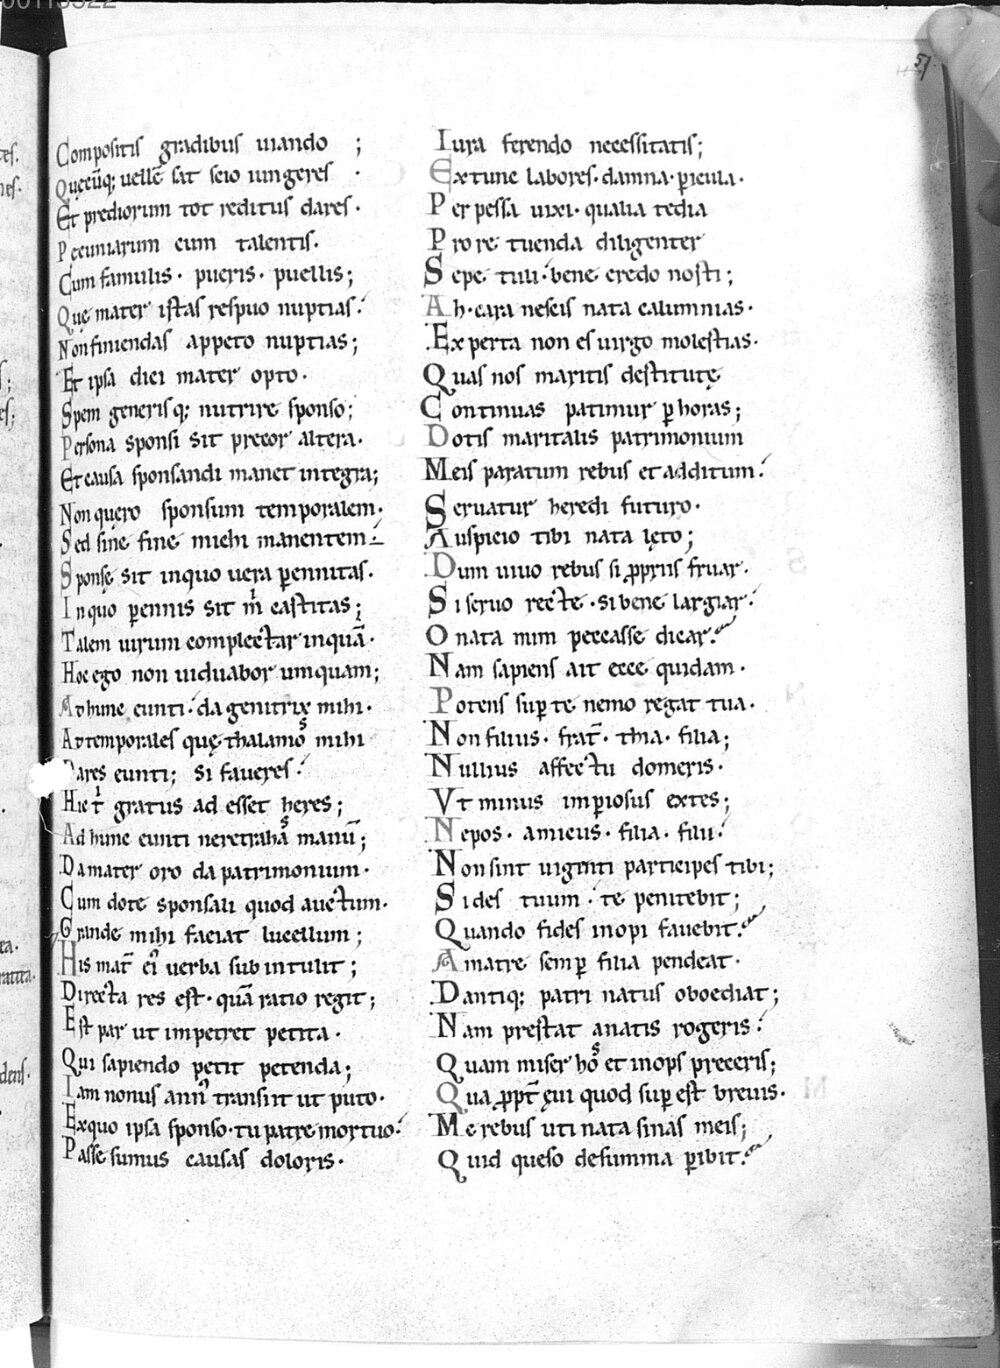 Compositis gradibus uiando ;
Quęcũq; uellẽ sat scio iungeres .
Et prediorum tot reditus dares .
Pecuniarum cum talentis .
Cum famulis . pueris . puellis ;
Quę mater istas respuo nuptias .
Non finiendas appeto nuptias ;
Et ipsa dici mater opto .
Spem generisq; nutrire sponso ;
Persona sponsi sit precor altera .
Et causa sponsandi manet integra ;
Non quero sponsum temporalem .
Sed sine fine michi manentem
Sponsę sit inquo uera ꝑennitas .
Inquo ꝑennis sit m̅ castitas ;
Talem uirum complectar inquã .
Hoc ego non uiduabor umquam ;
Adhunc eunti . da genitrix mihi .
Ad temporales quę thalamos mihi
Dares eunti ; si faueres .
Hic gratus ad esset heres ;
Ad hunc eunti ne retrahas manũ ;
Da mater oro da patrimonium .
Cum dote sponsali quod auctum .
Grande mihi faciat lucellum ;
His mat̅ ei uerba sub intulit ;
Directa res est . quã ratio regit ;
Est par ut impetret petita .
Qui sapiendo petit petenda ;
Iam nonus ann᾽ transiit ut puto .
Exquo ipsa sponso . tu patre mortuo .
Passe sumus causas doloris .
Iura ferendo necessitatis ;
Extunc labores . damna . ꝑicula .
Perpessa uixi . qualia tedia
Pro re tuenda diligenter
Sepe tuli . bene credo nosti ;
Ah . cara nescis nata calumnias .
Experta non es uirgo molestias .
Quas nos maritis destitutę
Continuas patimur ꝑ horas ;
Dotis maritalis patrimonium
Meis paratum rebus et additum .
Seruatur heredi futuro .
Auspicio tibi nata lęto ;
Dum uiuo rebus si ꝓpriis fruar .
Si seruo recte . si bene largiar .
O nata num peccasse dicar .
Nam sapiens ait ecce quidam .
Potens suꝑ te nemo regat tua .
Non filius . frat̅ . filia ;
Nullius affectu domeris .
Vt minus imꝑiosus extes ;
Nepos . amicus . filia . filii .
Non sint uiginti participes tibi ;
Si des tuum . te penitebit ;
Quando fides inopi fauebit .
A matre semꝑ filia pendeat .
Dantiq; patri natus oboediat ;
Nam prestat a natis rogeris .
Quam miser hos et inops preceris ;
Qua ꝓpt̅ ęui quod suꝑ est breuis .
Me rebus uti nata sinas meis ;
Quid queso de summa ꝑibit .